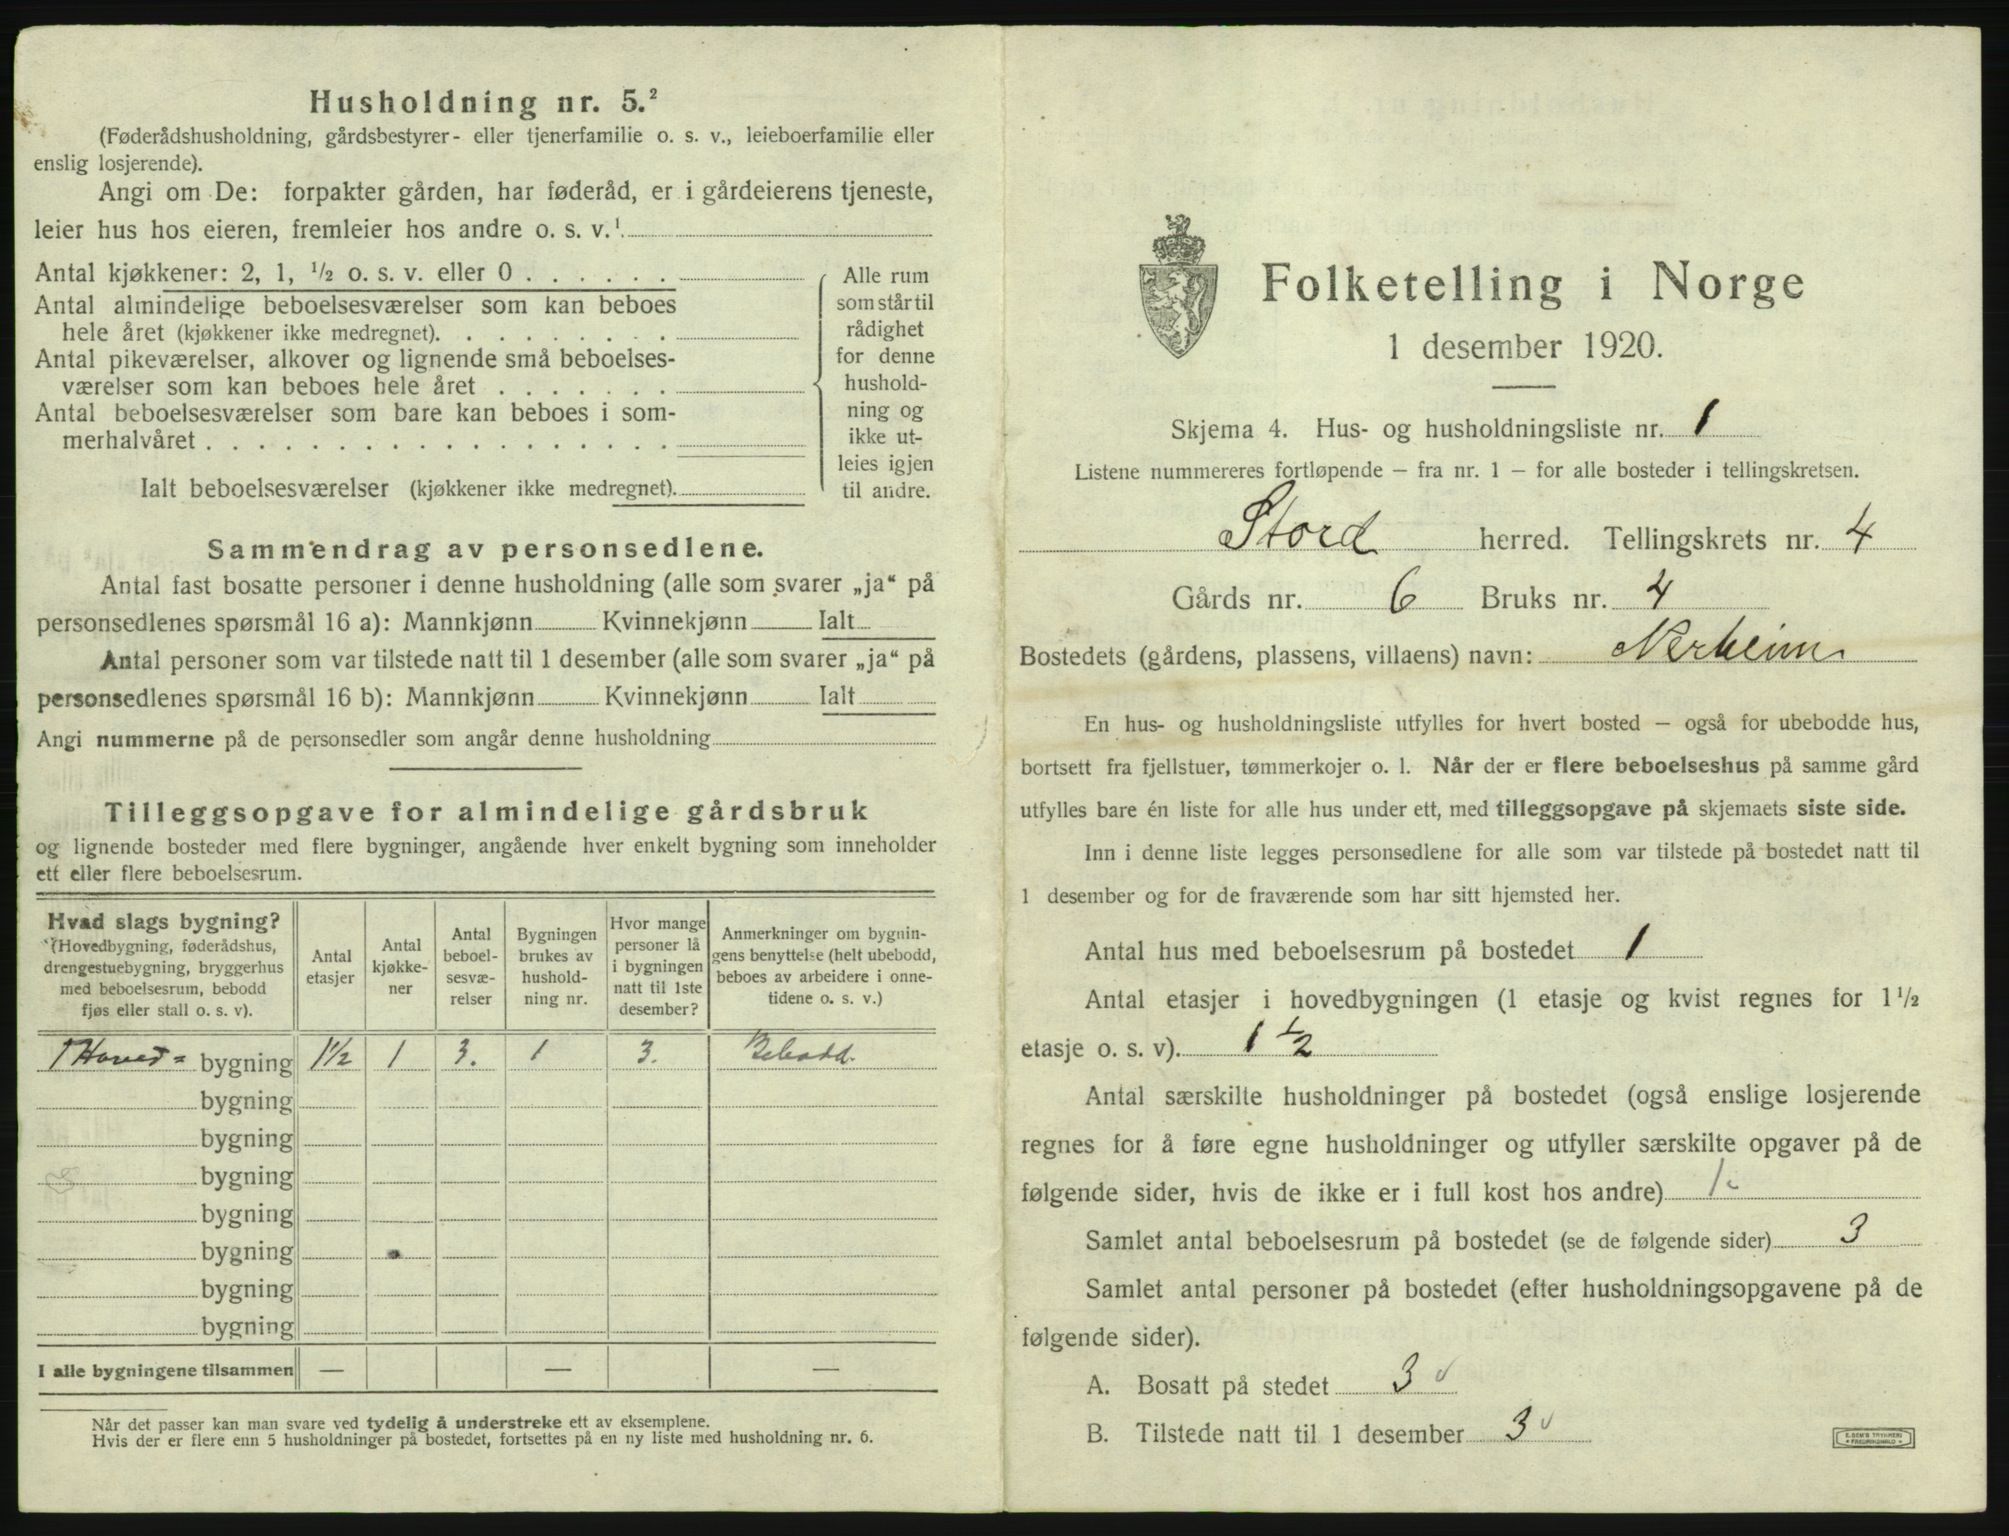 Husholdning nr. 5.²
(Føderådshusholdning, gårdsbestyrer- eller tjenerfamilie o. s. v., leieboerfamilie eller
enslig losjerende).
Angi om De: forpakter gården, har føderåd, er i gårdeierens tjeneste,
leier hus hos eieren, fremleier hos andre o. s. v.¹
Antal kjøkkener: 2, 1, ½ o. s. v. eller 0 . . . . . .
Antal almindelige beboelsesværelser som kan beboes
hele året (kjøkkener ikke medregnet). . . . . . . . .
Antal pikeværelser, alkover og lignende små beboelses-
værelser som kan beboes hele året . . . . . . .
Antal beboelsesværelser som bare kan beboes i som-
merhalvåret . . . . . . . . . . . . . . . . . .
Ialt beboelsesværelser (kjøkkener ikke medregnet).
Alle rum
som står til
rådighet
for denne
hushold-
ning og
ikke ut-
leies igjen
til andre.
Sammendrag av personsedlene.
Antal fast bosatte personer i denne husholdning (alle som svarer „ja“ på
personsedlenes spørsmål 16 a): Mannkjønn Kvinnekjønn Ialt
Antal personer som var tilstede natt til 1 desember (alle som svarer „ja“ på
personsedlenes spørsmål 16 b): Mannkjønn Kvinnekjønn Ialt
Angi nummerne på de personsedler som angår denne husholdning
Tilleggsopgave for almindelige gårdsbruk
og lignende bosteder med flere bygninger, angående hver enkelt bygning som inneholder
ett eller flere beboelsesrum.
Hvad slags bygning?
(Hovedbygning, føderådshus,
drengestuebygning, bryggerhus
med beboelsesrum, bebodd
fjøs eller stall o. s. v).
Antal
etasjer
Antal
kjøkke-
ner
Antal
beboel-
sesvæ-
relser
Bygningen
brukes av
hushold-
ning nr.
Hvor mange
personer lå
i bygningen
natt til 1ste
desember?
Anmerkninger om bygnin-
gens benyttelse (helt ubebodd,
beboes av arbeidere i onne-
tidene o. s. v.)
1 Hoved= bygning 1½ 1 3. 1 3. Bebodd.
bygning
bygning
bygning
bygning
bygning
bygning
bygning
I alle bygningene tilsammen — — —
Når det passer kan man svare ved tydelig å understreke ett av eksemplene.
Hvis der er flere enn 5 husholdninger på bostedet, fortsettes på en ny liste med husholdning nr. 6.
Folketelling i Norge
1 desember 1920.
Skjema 4. Hus- og husholdningsliste nr. 1
Listene nummereres fortløpende — fra nr. 1 — for alle bosteder i tellingskretsen.
Stord herred. Tellingskrets nr. 4
Gårds nr. 6 Bruks nr. 4
Bostedets (gårdens, plassens, villaens) navn: Nerheim
En hus- og husholdningsliste utfylles for hvert bosted — også for ubebodde hus,
bortsett fra fjellstuer, tømmerkojer o. l. Når der er flere beboelseshus på samme gård
utfylles bare én liste for alle hus under ett, med tilleggsopgave på skjemaets siste side.
Inn i denne liste legges personsedlene for alle som var tilstede på bostedet natt til
1 desember og for de fraværende som har sitt hjemsted her.
Antal hus med beboelsesrum på bostedet 1
Antal etasjer i hovedbygningen (1 etasje og kvist regnes for 1½
etasje o. s. v). 1½
Antal særskilte husholdninger på bostedet (også enslige losjerende
regnes for å føre egne husholdninger og utfyller særskilte opgaver på de
følgende sider, hvis de ikke er i full kost hos andre) 1
Samlet antal beboelsesrum på bostedet (se de følgende sider) 3
Samlet antal personer på bostedet (efter husholdningsopgavene på de
følgende sider).
A. Bosatt på stedet 3
B. Tilstede natt til 1 desember 3